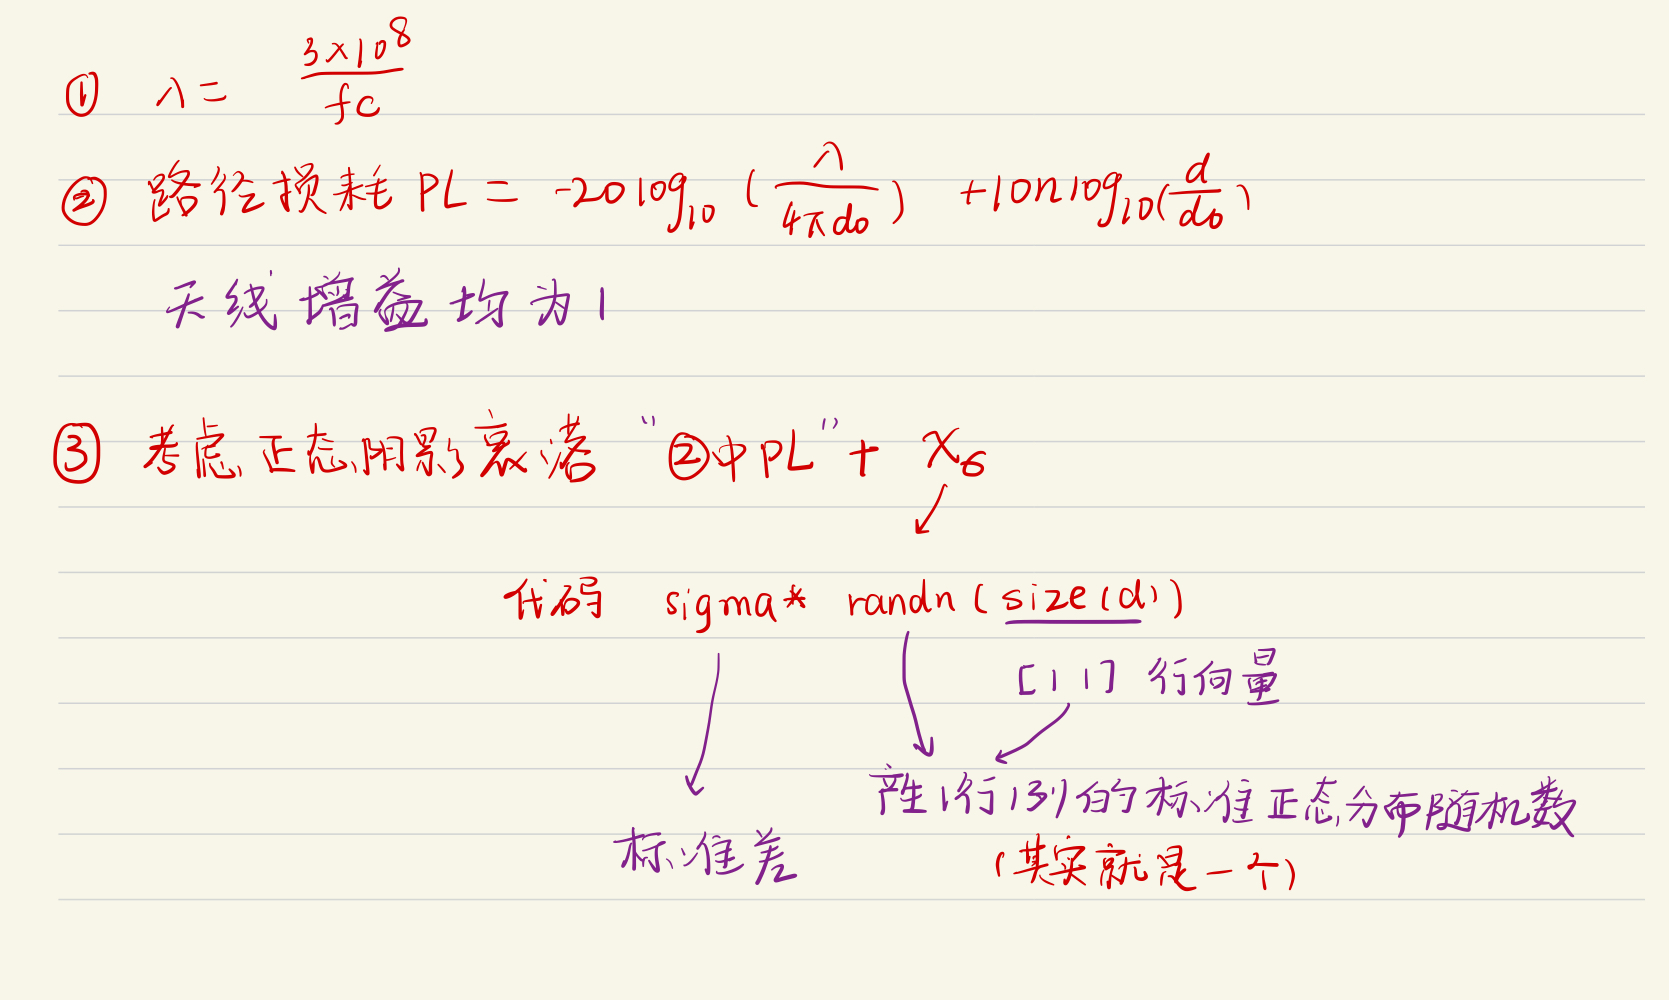 ① λ = 3×10^8 / fc
② 路径损耗 PL = -20log₁₀ (λ / 4πd₀) +10nlog₁₀(d / d₀)
天线增益均为1
③ 考虑正态阴影衰落 “②中PL” + Xσ
代码 sigma* randn(size(d))
[1 1] 行向量
产生1行1列的标准正态分布随机数
标准差
(其实就是一个)